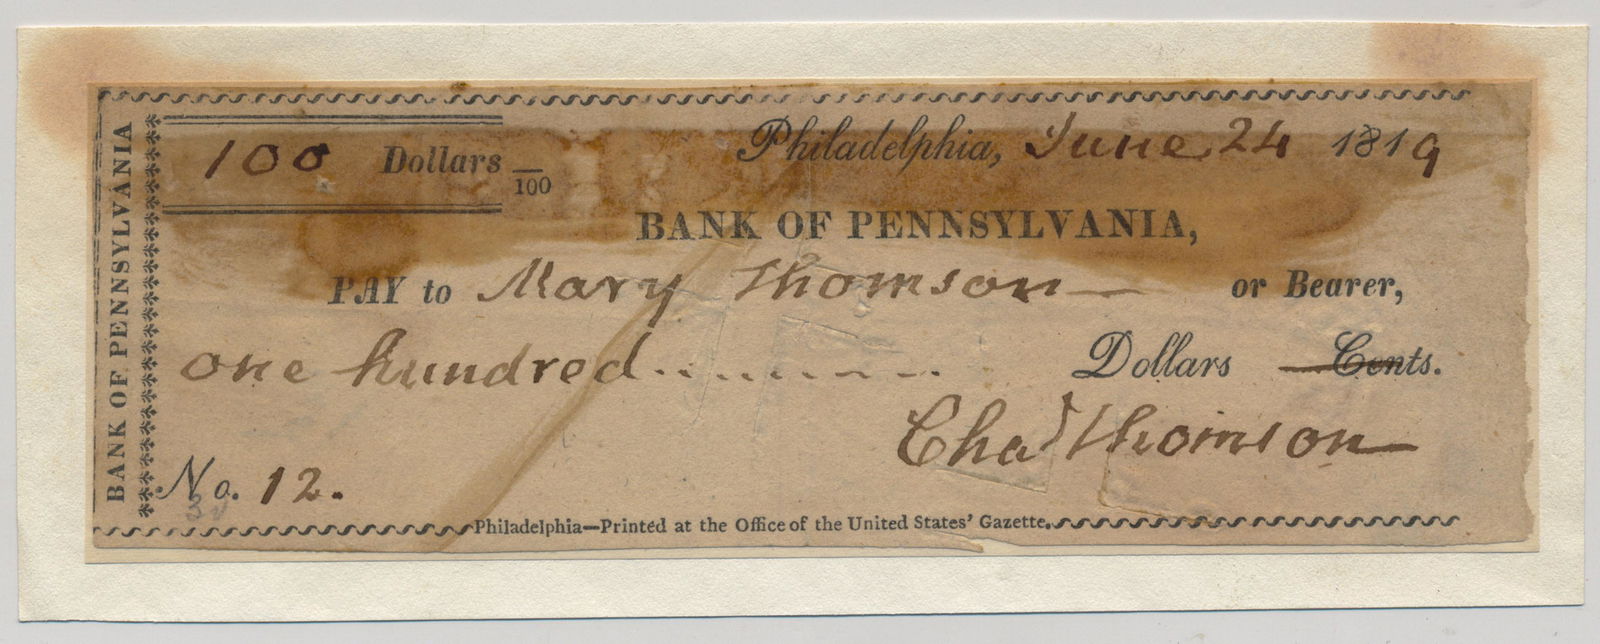 BANK OF PENNSYLVANIA
100 Dollars /100
Philadelphia, June 24 1819
BANK OF PENNSYLVANIA,
PAY to Mary Thomson or Bearer,
one hundred.......... Dollars Cents.
Chas Thomson
No. 12.
Philadelphia—Printed at the Office of the United States' Gazette.